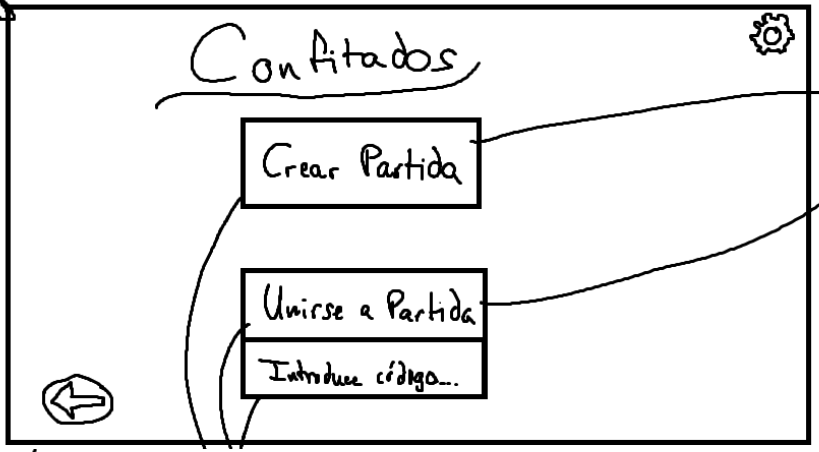 Confitados
Crear Partida
Unirse a Partida
Introduce código...